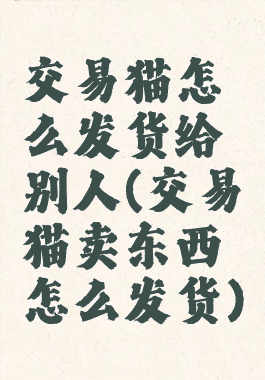 交易猫怎
么发货给
别人(交易
猫卖东西
怎么发货)